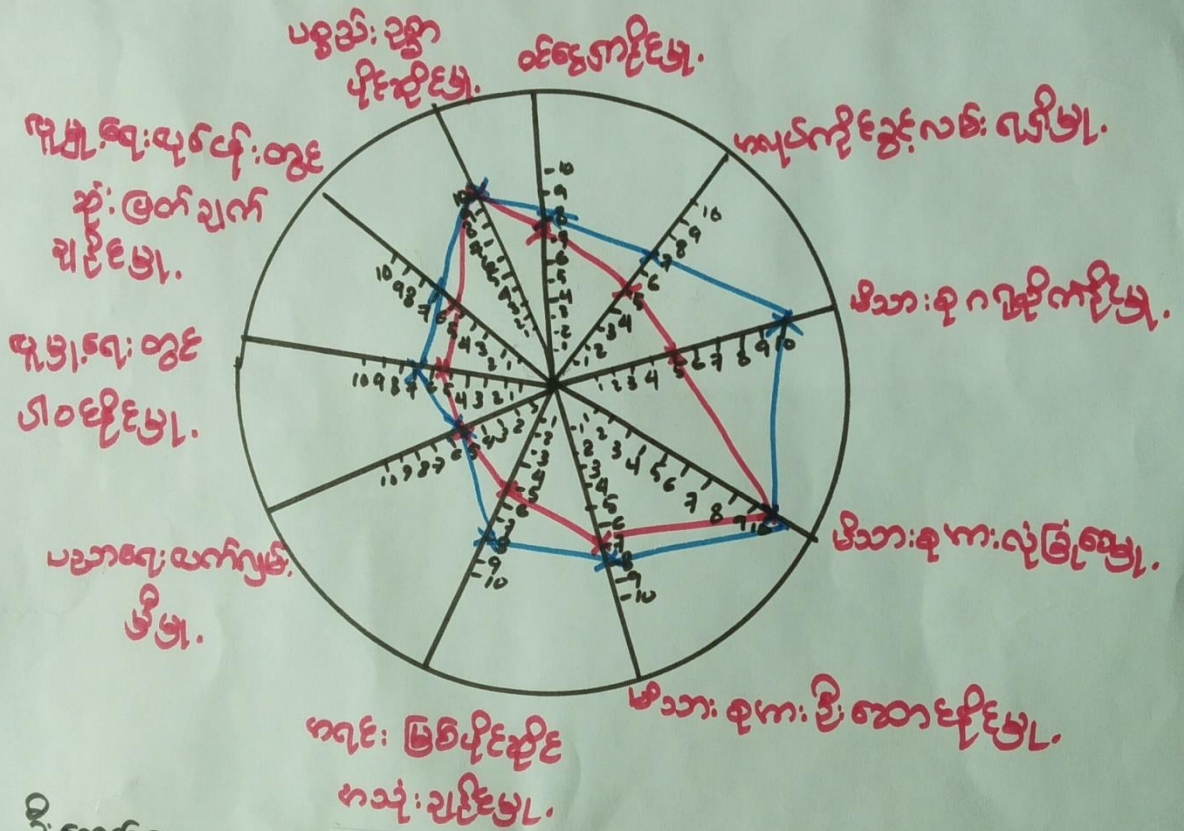 ပစ္စည်းဥစ္စာ
ပိုင်ဆိုင်မှု.
ဝင်ငွေရှာနိုင်မှု.
အလုပ်ကိုင်ခွင့်လမ်း ရရှိမှု.
မိသားစု ဂရုစိုက်နိုင်မှု.
မိသားစုအား လုံခြုံစေမှု.
မိသားစုအား ဦးဆောင်နိုင်မှု.
အရင်းမြစ်ပိုင်ဆိုင်
အသုံးချနိုင်မှု.
ပညာရေး လက်လှမ်း
မှီမှု.
လူမှုရေးတွင်
ပါဝင်နိုင်မှု.
လူမှုရေးလုပ်ငန်းတွင်
ဆုံးဖြတ်ချက်
ချနိုင်မှု.
1 2 3 4 5 6 7 8 9 10